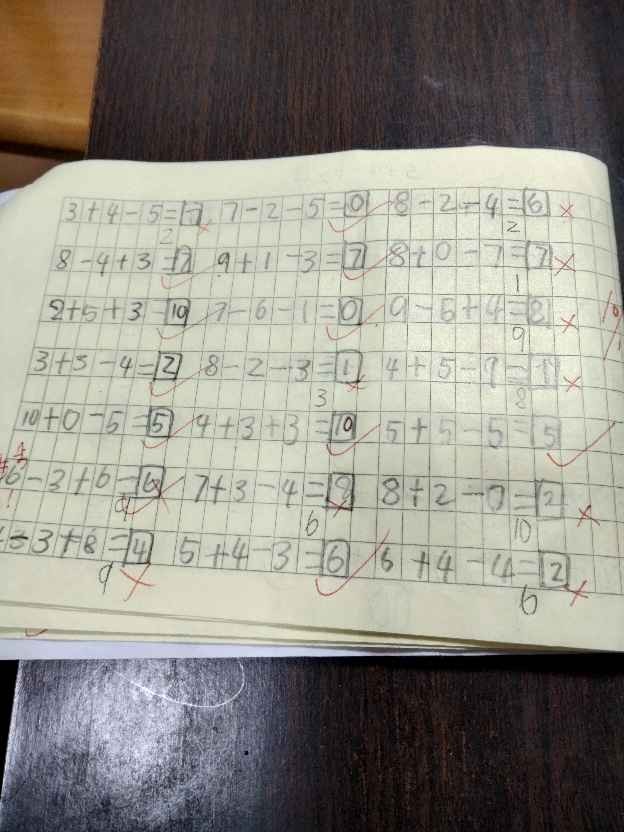 3+4-5=7 7-2-5=0 8-2-4=6
2 2
8-4+3=7 9+1-3=7 8+0-7=7
1
2+5+3=10 7-6-1=0 9-5+4=8
9
3+3-4=2 8-2-3=1 4+5-9=1
3 8
10+0-5=5 4+3+3=10 5+5-5=5
6-3+6=6 7+3-4=8 8+2-0=2
9 6 10
-3+8=4 5+4-3=6 6+4-4=2
9 6